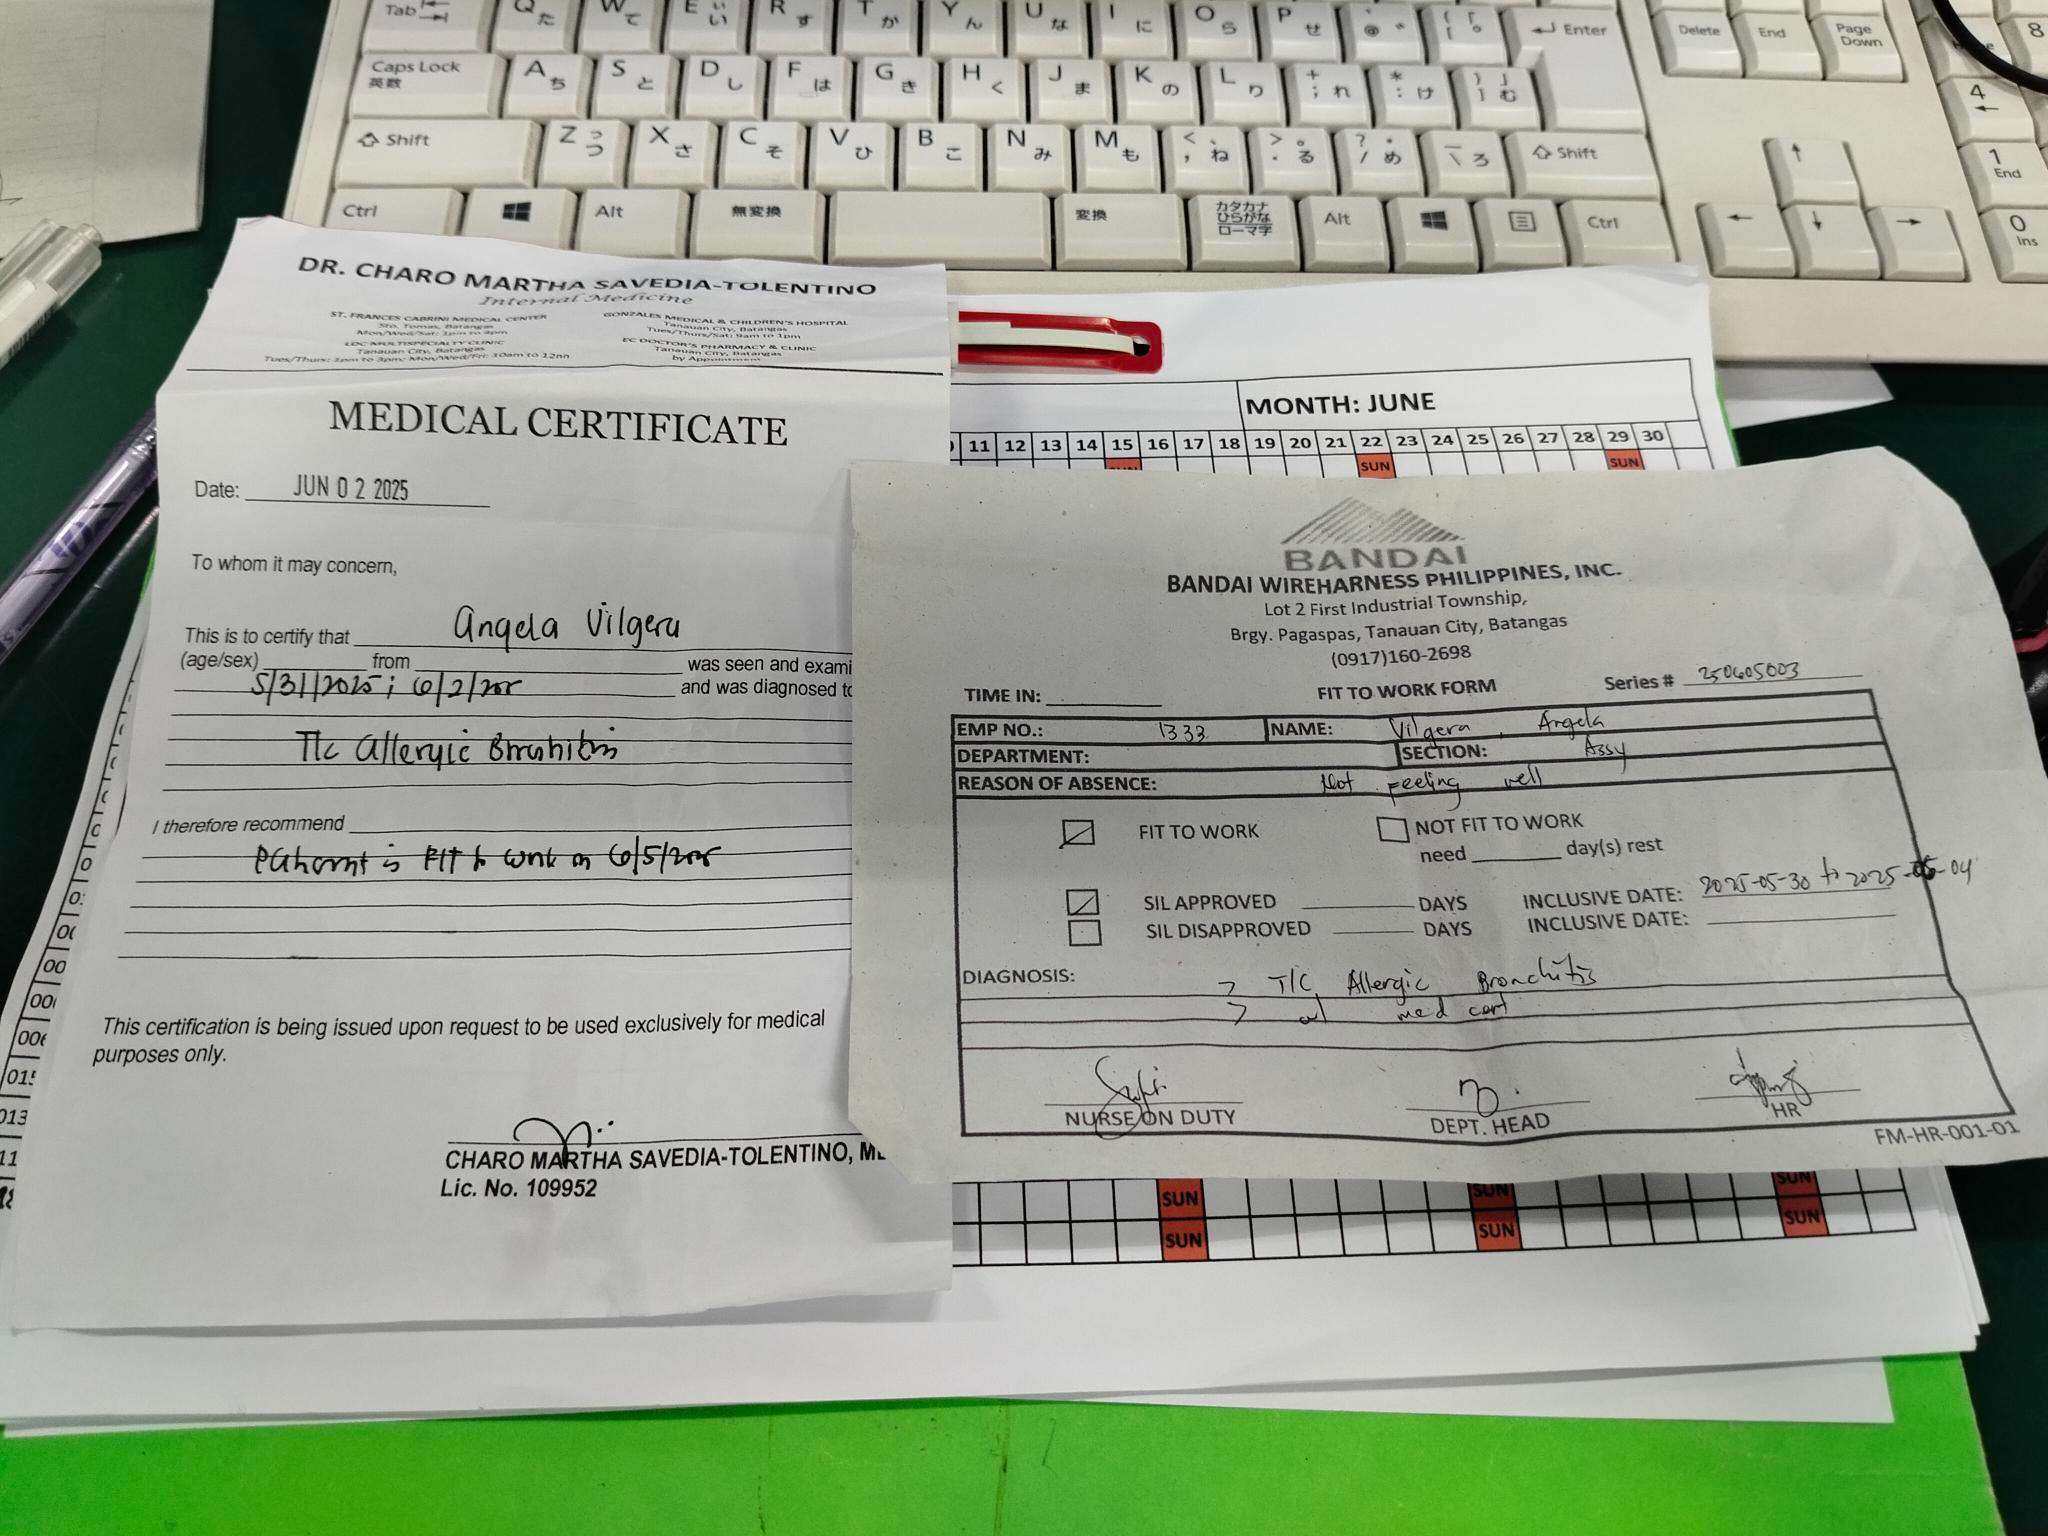 Tab
Q た W て E い R す T か Y ん U な I に O ら P せ
Enter
Delete End Page Down
8
Caps Lock 英数 A ち S と D し F は G き H く J ま K の L り + ; れ * : け } ] む
4
Shift Z っ つ X さ C そ V ひ B こ N み M も < 、 , ね > 。 . る ? ・ / め \ ろ Shift
1 End
Ctrl Alt 無変換 変換 カタカナ ひらがな ローマ字 Alt Ctrl
0 Ins
DR. CHARO MARTHA SAVEDIA-TOLENTINO
Internal Medicine
ST. FRANCES CABRINI MEDICAL CENTER
Sto. Tomas, Batangas
Mon/Wed/Sat: 1pm to 4pm
LDC MULTISPECIALTY CLINIC
Tanauan City, Batangas
Tues/Thurs: 1pm to 3pm; Mon/Wed/Fri: 10am to 12nn
GONZALES MEDICAL & CHILDREN'S HOSPITAL
Tanauan City, Batangas
Tues/Thurs/Sat: 9am to 1pm
EC DOCTOR'S PHARMACY & CLINIC
Tanauan City, Batangas
by Appointment
MEDICAL CERTIFICATE
Date: JUN 02 2025
To whom it may concern,
This is to certify that Angela Vilgera
(age/sex) from was seen and exami
5/31/2025; 6/2/2025 and was diagnosed to
T/c Allergic Bronchitis
I therefore recommend
Patient is FIT to work on 6/5/2025
This certification is being issued upon request to be used exclusively for medical
purposes only.
CHARO MARTHA SAVEDIA-TOLENTINO, M
Lic. No. 109952
MONTH: JUNE
11 12 13 14 15 16 17 18 19 20 21 22 23 24 25 26 27 28 29 30
SUN SUN SUN
BANDAI
BANDAI WIREHARNESS PHILIPPINES, INC.
Lot 2 First Industrial Township,
Brgy. Pagaspas, Tanauan City, Batangas
(0917)160-2698
TIME IN: FIT TO WORK FORM Series # 250605003
EMP NO.: 1333 NAME: Vilgera, Angela
DEPARTMENT: SECTION: Assy
REASON OF ABSENCE: Not feeling well
FIT TO WORK NOT FIT TO WORK
need day(s) rest
SIL APPROVED DAYS INCLUSIVE DATE: 2025-05-30 to 2025-06-04
SIL DISAPPROVED DAYS INCLUSIVE DATE:
DIAGNOSIS: > T/C Allergic Bronchitis
> w/ med cert
NURSE ON DUTY DEPT. HEAD HR
FM-HR-001-01
SUN SUN SUN
SUN SUN SUN